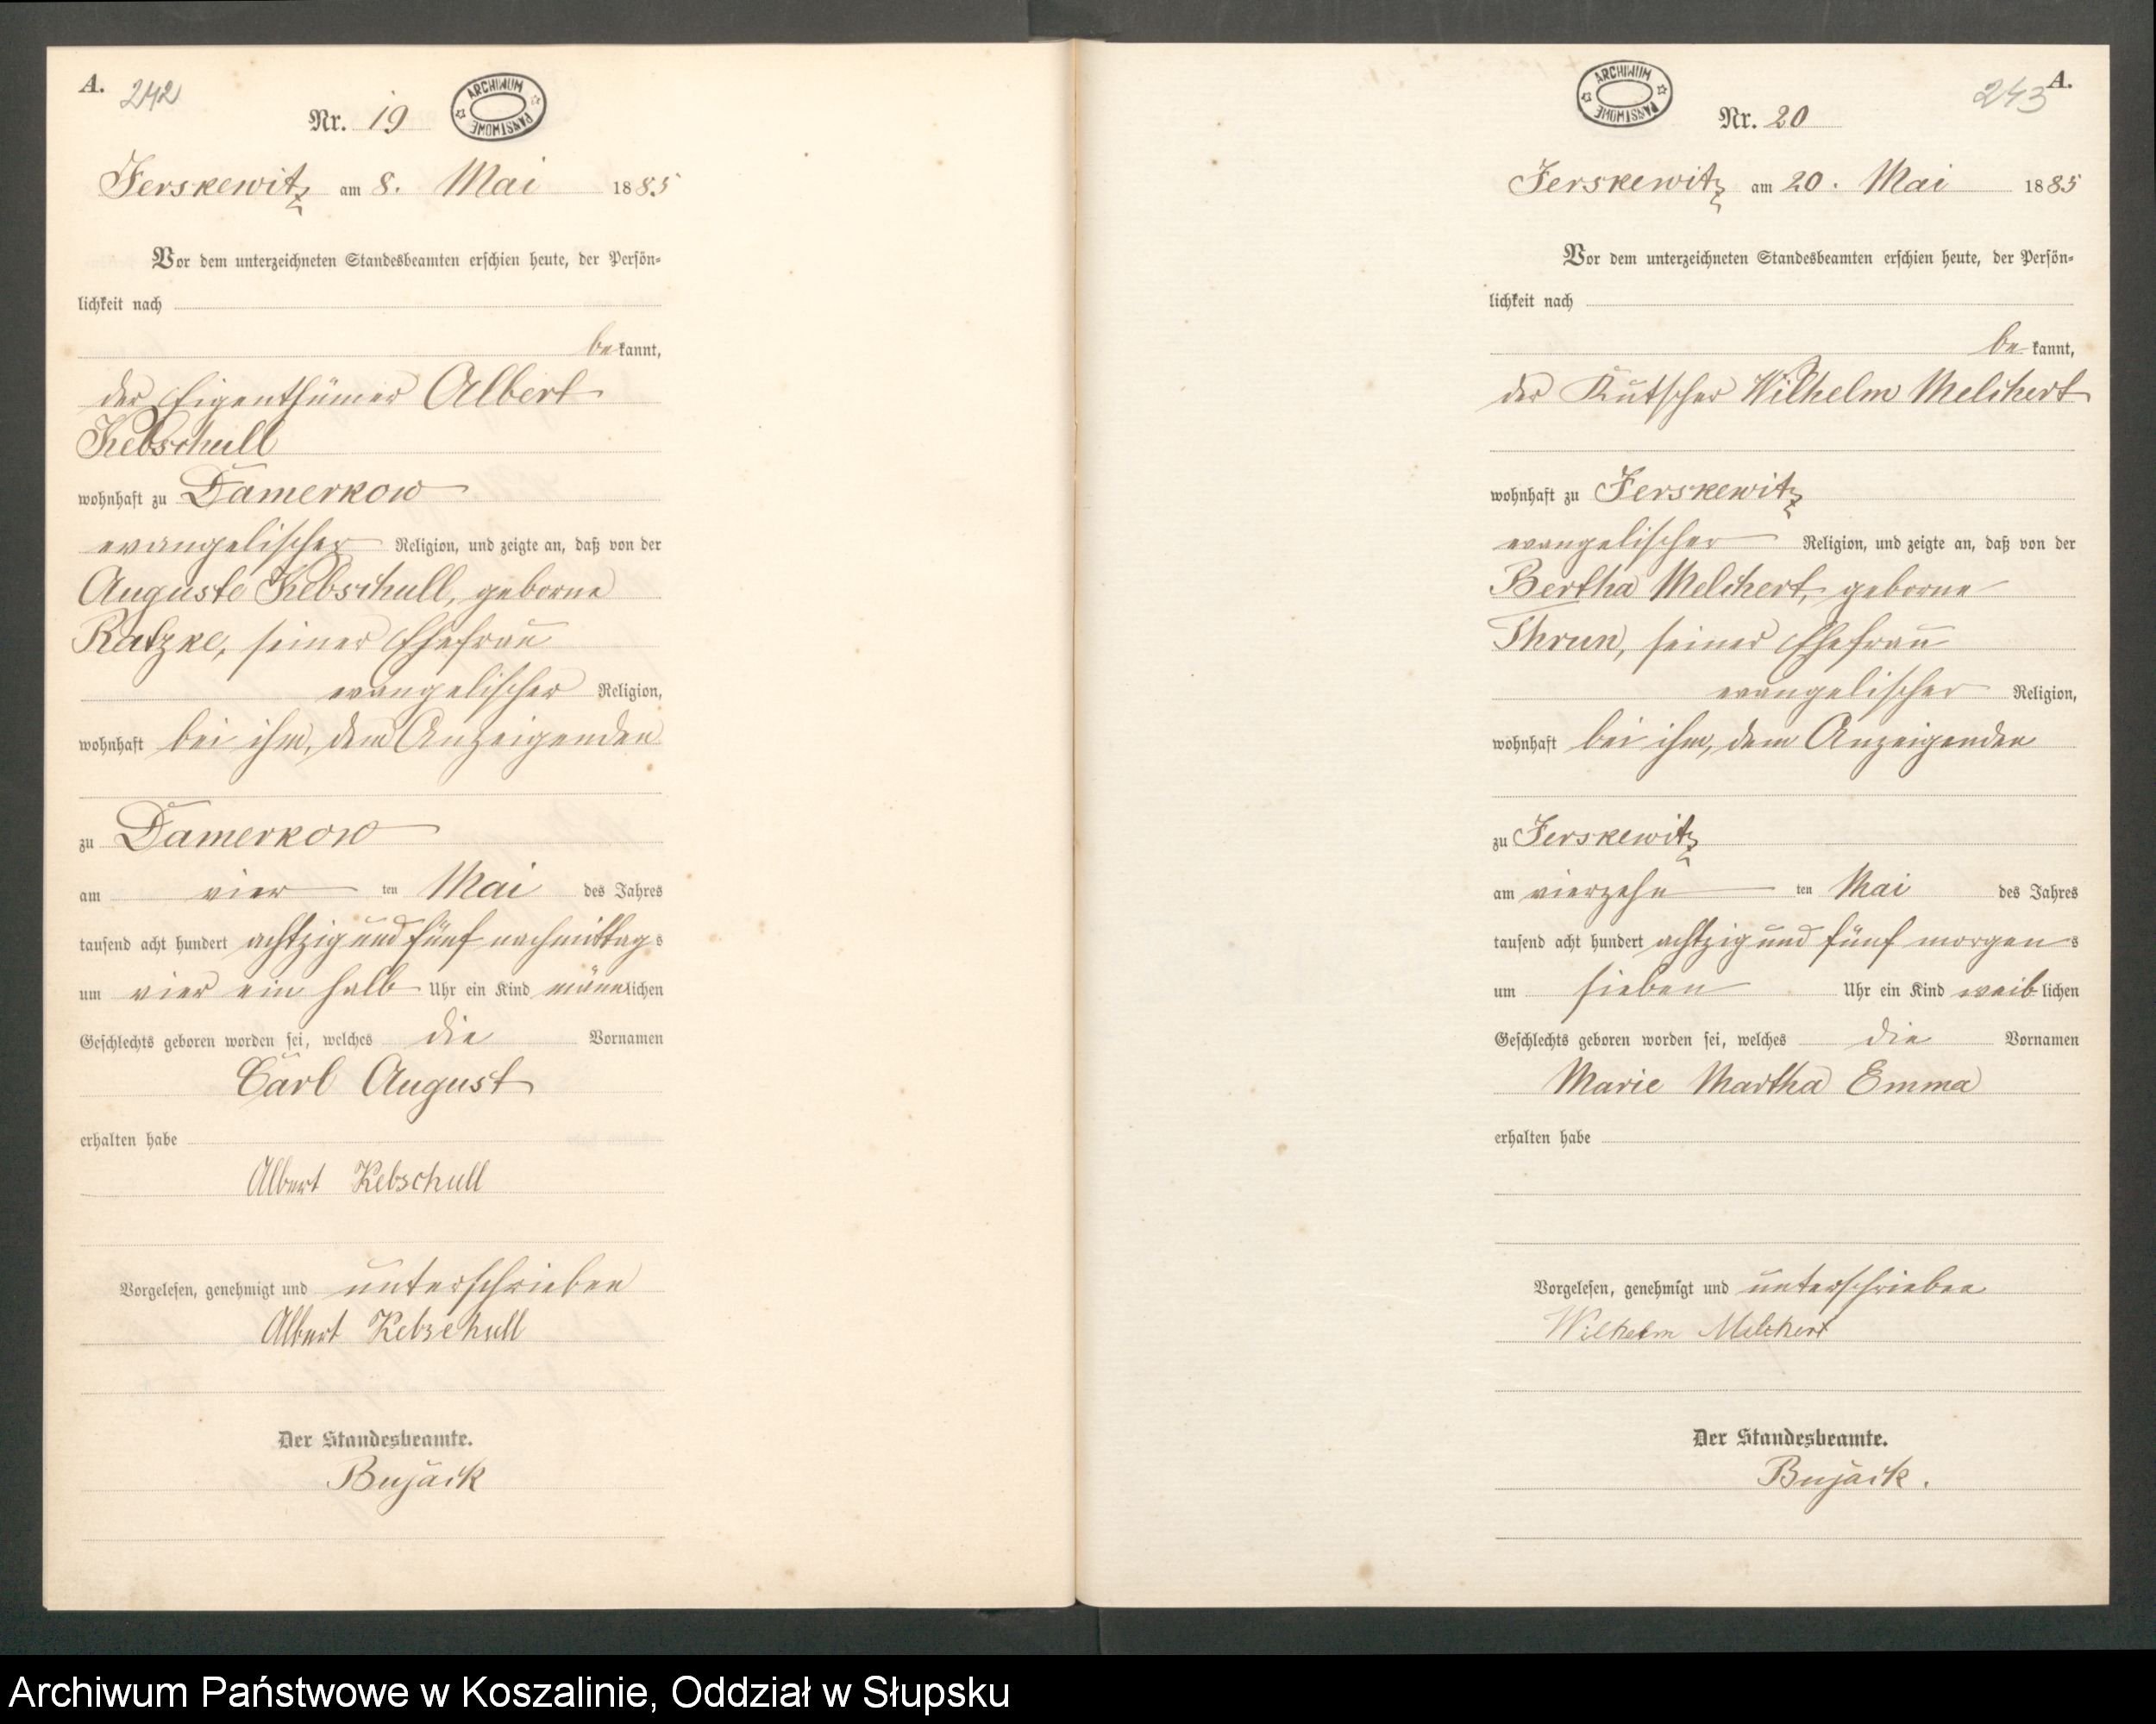 A. 242
Nr. 19
ARCHIWUM PAŃSTWOWE
Jerskewitz am 8. Mai 1885
Vor dem unterzeichneten Standesbeamten erschien heute, der Persön-
lichkeit nach
bekannt,
der Eigenthümer Albert
Kebschull
wohnhaft zu Damerkow
evangelischer Religion, und zeigte an, daß von der
Auguste Kebschull, geborne
Ratzke, seiner Ehefrau
evangelischer Religion,
wohnhaft bei ihm, dem Anzeigenden
zu Damerkow
am vier ten Mai des Jahres
tausend acht hundert achtzig und fünf nachmittags
um vier ein halb Uhr ein Kind männlichen
Geschlechts geboren worden sei, welches die Vornamen
Carl August
erhalten habe
Albert Kebschull
Vorgelesen, genehmigt und unterschrieben
Albert Kebschull
Der Standesbeamte.
Bujack
243 A.
ARCHIWUM PAŃSTWOWE
Nr. 20
Jerskewitz am 20. Mai 1885
Vor dem unterzeichneten Standesbeamten erschien heute, der Persön-
lichkeit nach
bekannt,
der Kutscher Wilhelm Melchert
wohnhaft zu Jerskewitz
evangelischer Religion, und zeigte an, daß von der
Bertha Melchert, geborne
Thrun, seiner Ehefrau
evangelischer Religion,
wohnhaft bei ihm, dem Anzeigenden
zu Jerskewitz
am vierzehn ten Mai des Jahres
tausend acht hundert achtzig und fünf morgens
um sieben Uhr ein Kind weiblichen
Geschlechts geboren worden sei, welches die Vornamen
Marie Martha Emma
erhalten habe
Vorgelesen, genehmigt und unterschrieben
Wilhelm Melchert
Der Standesbeamte.
Bujack.
Archiwum Państwowe w Koszalinie, Oddział w Słupsku